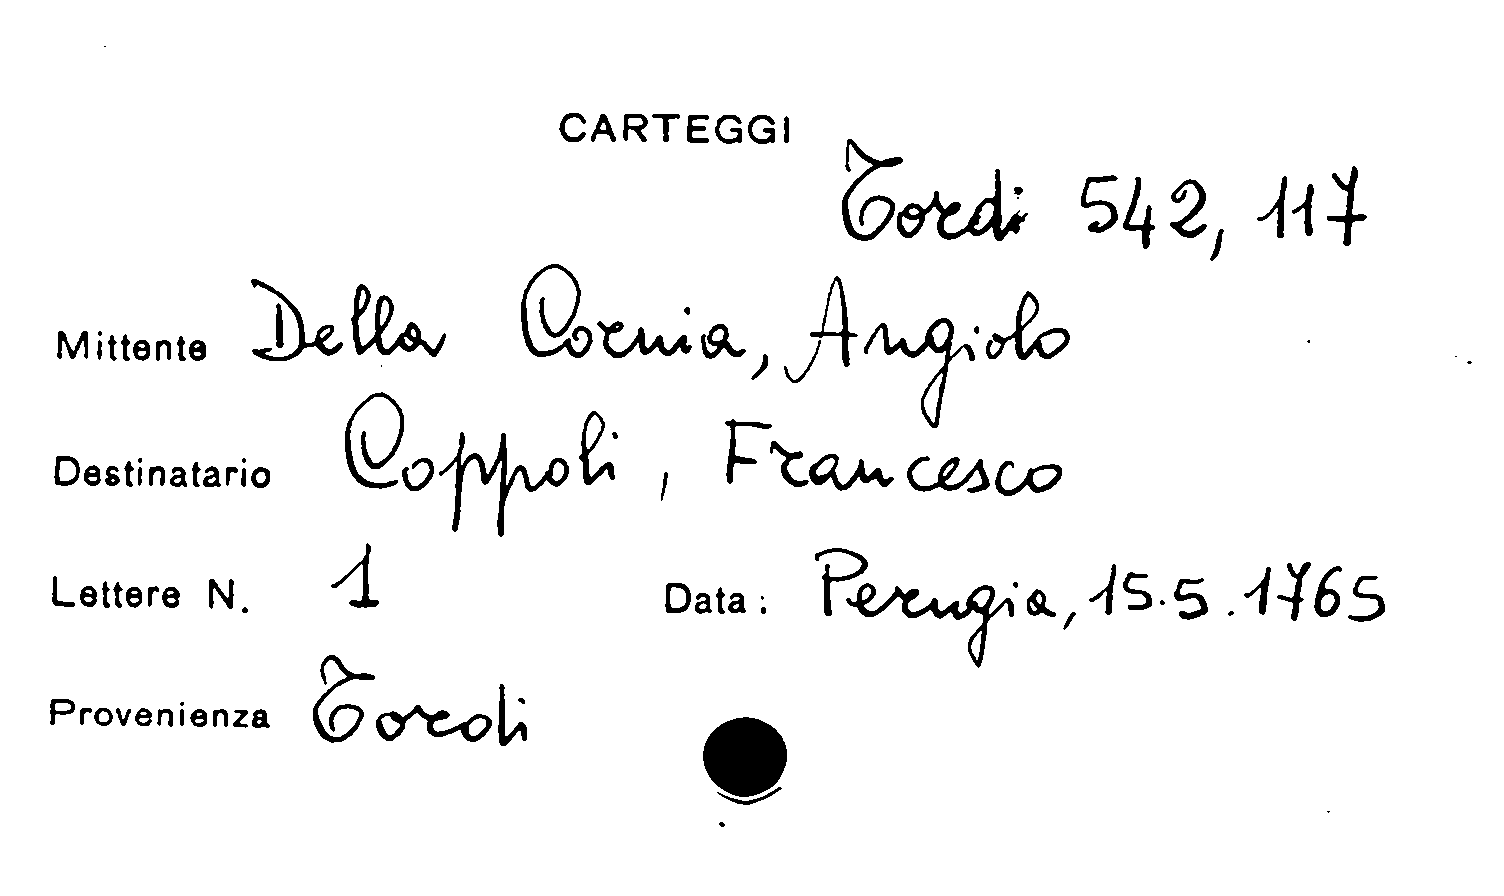 CARTEGGI
Tordi 542, 117
Mittente Della Cornia, Angiolo
Destinatario Coppoli, Francesco
Lettere N. 1 Data: Perugia, 15.5.1765
Provenienza Tordi